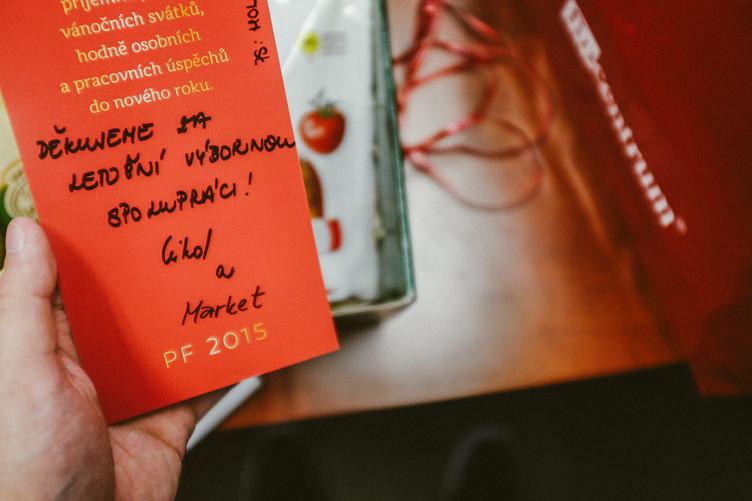 vánočních svátků,
hodně osobních
a pracovních úspěchů
do nového roku.
DĚKUJEME ZA
LETOŠNÍ VÝBORNOU
SPOLUPRÁCI!
a
Market
PF 2015
centrum